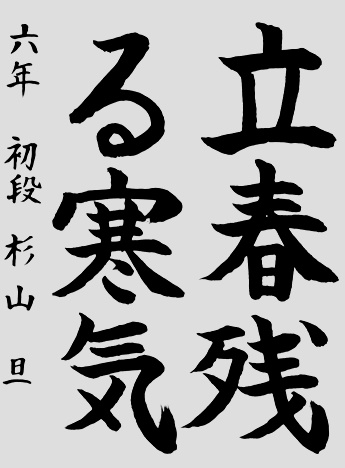 立春残
る寒気
六年 初段 杉山 旦